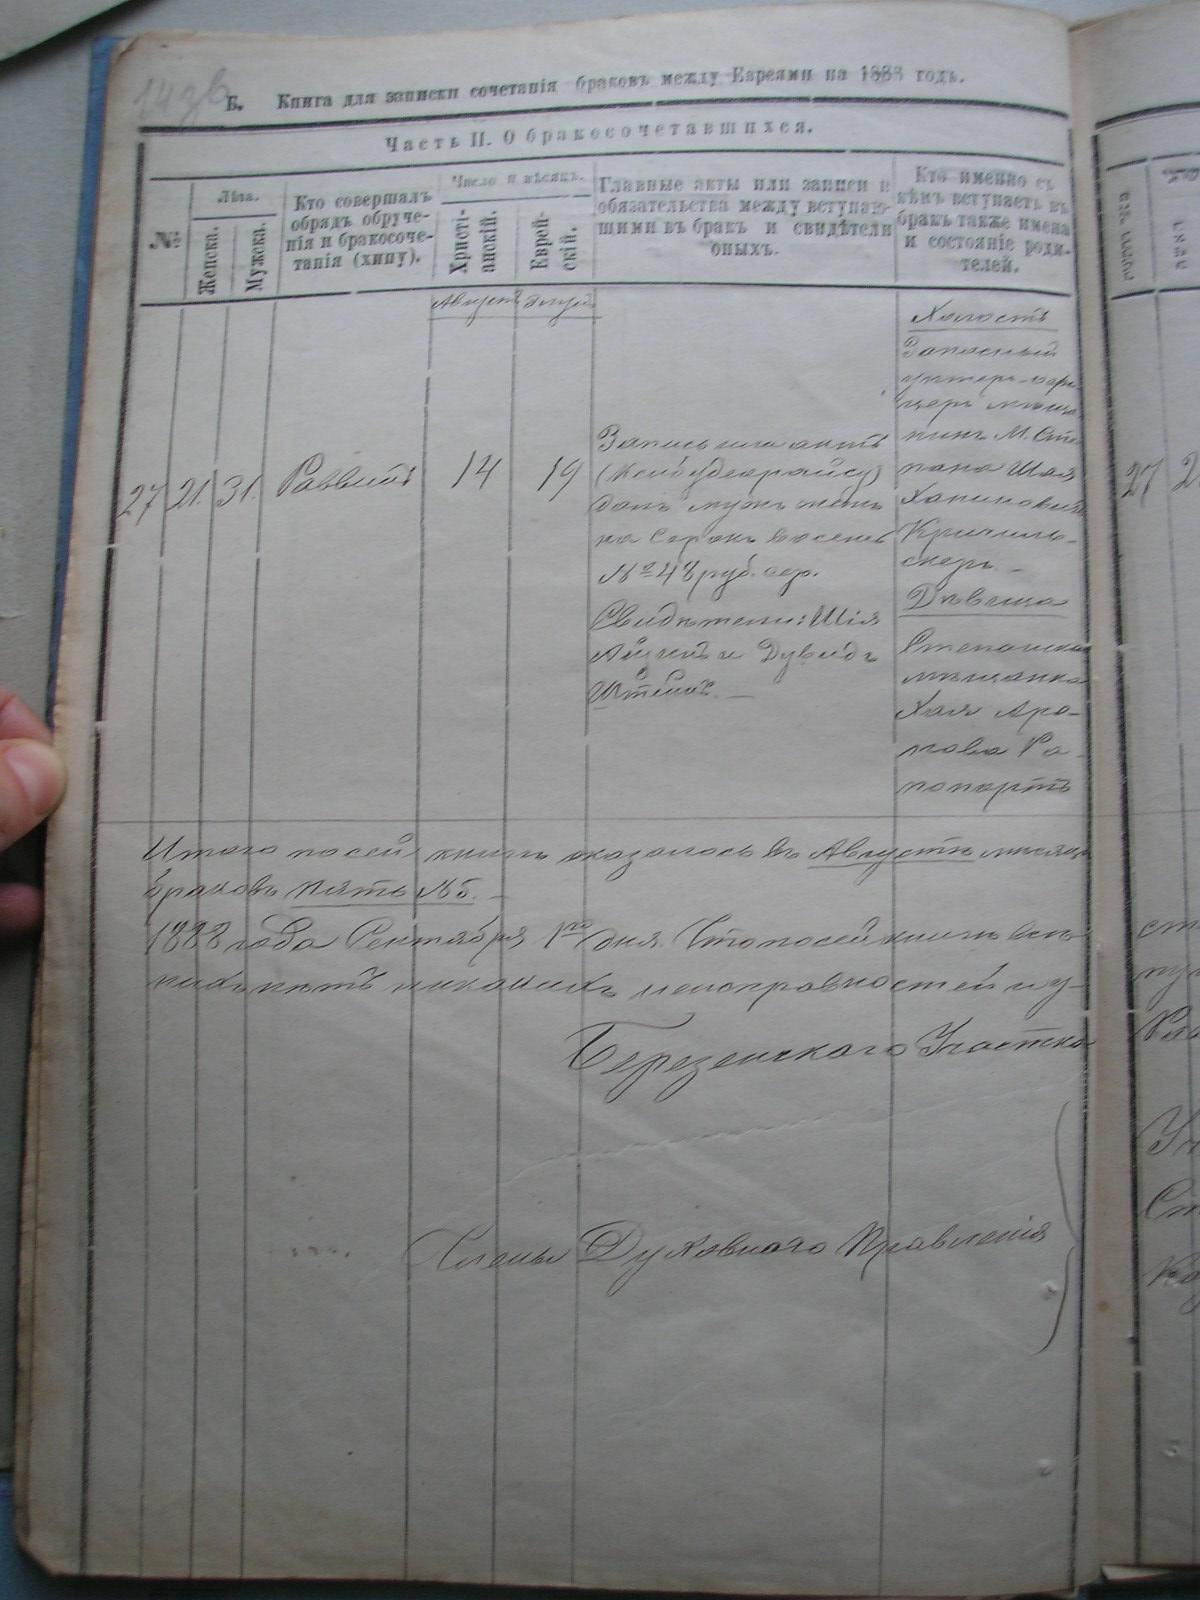 Б. Книга для записки сочетанія браковъ между Евреями на 1888 годъ.
Часть II. О бракосочетавшихся.
№
Лѣта.
Женска.
Мужска.
Кто совершалъ
обрядъ обруче-
нія и бракосоче-
танія (хипу).
Число и мѣсяцъ.
Христі-
анскій.
Еврей-
скій.
Главные акты или записи и
обязательства между вступаю-
щими въ бракъ и свидѣтели
оныхъ.
Кто именно съ
кѣмъ вступаетъ въ
бракъ также имена
и состояніе роди-
телей.
Августъ Элулъ
27 21. 31. Раввинъ 14 19
Запись или актъ
данъ мужъ женѣ
на Сорокъ восемь
№ 48 руб. сер.
Свидѣтели: Шія
Айзикъ и Дувидъ
Штейнъ. —
Холостъ
Запасный
унтеръ-офи-
церъ мѣща-
нинъ М. Сте-
пана Шая
Хаимовичъ
Кричиль-
скеръ —
Дѣвица
Степанска
мѣщанка
Хая Аро-
нова Ра-
попортъ
Итого по сей книгѣ оказалось въ Августѣ мѣсяцѣ
браковъ пять № 5. —
1888 года Сентября 1го дня. Что по сей книгѣ
нѣтъ никакихъ неисправностей и у-
Березенскаго Участка
Члены Духовнаго Правленія
27